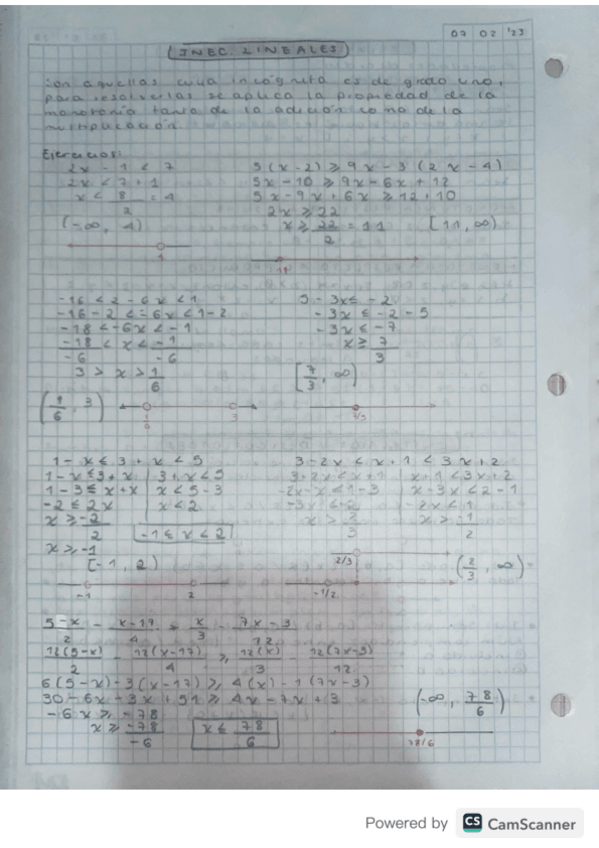 07 02 '23
INEC. LINEALES
Son aquellas cuya incógnita es de grado uno,
para resolverlas se aplica la propiedad de la
monotonía tanto de la adición como de la
multiplicación
Ejercicios:
2x - 1 < 7
2x < 7 + 1
x < 8/2 = 4
(-∞, 4)
5(x-2) ≥ 9x - 3(2x-4)
5x - 10 ≥ 9x - 6x + 12
5x - 9x + 6x ≥ 12 + 10
2x ≥ 22
x ≥ 22/2 = 11
[11, ∞)
11
-16 < 2 - 6x < 1
-16 - 2 < -6x < 1 - 2
-18 < -6x < -1
-18/-6 < x < -1/-6
3 > x > 1/6
(1/6, 3)
3
5 - 3x ≤ -2
-3x ≤ -2 - 5
-3x ≤ -7
x ≥ 7/3
[7/3, ∞)
7/3
1 - x ≤ 3 + x < 5
1 - x ≤ 3 + x
1 - 3 ≤ x + x
-2 ≤ 2x
x ≥ -2/2
x ≥ -1
3 + x < 5
x < 5 - 3
x < 2
-1 ≤ x < 2
[-1, 2)
-1 2
3 - 2x < x + 1 < 3x + 2
3 - 2x < x + 1
-2x - x < 1 - 3
-3x < -2
x > 2/3
x + 1 < 3x + 2
x - 3x < 2 - 1
-2x < 1
x > -1/2
2/3
-1/2
(2/3, ∞)
5-x/2 - x-17/4 ≥ x/3 - 7x-3/12
12(5-x)/2 - 12(x-17)/4 ≥ 12(x)/3 - 12(7x-3)/12
6(5-x) - 3(x-17) ≥ 4(x) - 1(7x-3)
30 - 6x - 3x + 51 ≥ 4x - 7x + 3
-6x ≥ -78
x ≥ -78/-6
x ≤ 78/6
(-∞, 78/6)
78/6
Powered by CS CamScanner